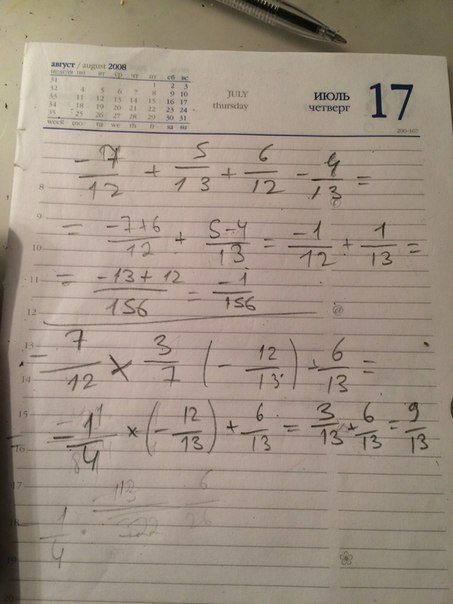 август / august 2008
неделя пн вт ср чт пт сб вс
31 1 2 3
32 4 5 6 7 8 9 10
33 11 12 13 14 15 16 17
34 18 19 20 21 22 23 24
35 25 26 27 28 29 30 31
week mo tu we th fr sa su
JULY
thursday
ИЮЛЬ
четверг
17
-7/12 + 5/13 + 6/12 - 4/13 =
8
9
= -7+6/12 + 5-4/13 = -1/12 + 1/13 =
10
11
= -13+12/156 = -1/156
12
13
- 7/12 × 3/7 (- 12/13) + 6/13 =
14
15
-1/4 × (- 12/13) + 6/13 = 3/13 + 6/13 = 9/13
16
17
18
1/4 ·
19